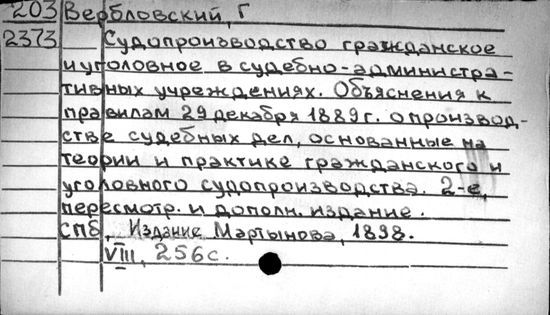 203 Вербловский, Г
2373 Судопроизводство гражданское
и уголовное в судебно-администра-
тивных учреждениях. Объяснения к
правилам 29 декабря 1889 г. о производ-
стве судебных дел, основанные на
теории и практике гражданского и
уголовного судопроизводства. 2-е,
пересмотр. и дополн. издание.
СПб, Издание Мартынова, 1898.
VIII, 256 с.